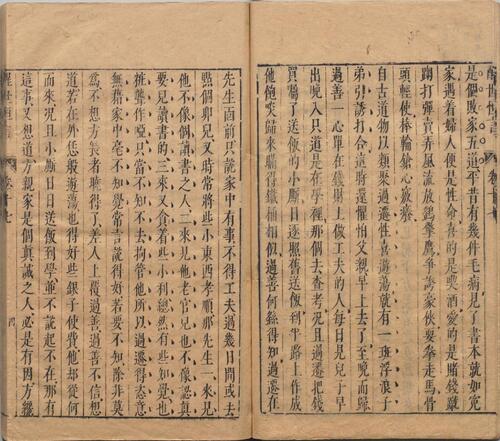 是個敗家五道平昔有幾件毛病見了書本就如冤
家遇著婦人便是性命喜的是喫酒愛的是賭錢蹴
踘打彈賣弄風流放鷂擎鷹爭誇豪俠耍拳走馬骨
頭輕使棒輪鎗心竅癢
自古道物以類聚過遷性喜游蕩就有一班浮浪子
弟引誘打合這時還懼怕父親早上去了至晚而歸
過善一心單在錢財上做工夫的人每日見兒子早
出晚入只道是在學裡那個去查考況且過遷把錢
買囑了送飯的小廝日逐照舊送飯到半路上作成
他飽啖歸來瞞得鐵桶相似過善何繇得知過遷在
先生面前只說家中有事不得工夫過幾日間或去
點個卯兒又時將些小東西孝順那先生一來見
他不像個讀書之人二來見他老官兒也不像認真
要兒讀書的三來又貪著些小利總然有些知覺也
粧聾作啞只當不知不去拘管他所以過遷得恣意
無藉家中毫不知覺常言說得好若要不知除非莫
為不想方長者曉得了差人上覆過善過善不信想
道若在外恁般游蕩也得好些銀子使費他却從何
而來況且小廝日日送飯到學並不說起不在那有
這事又想道方親家是個真誠之人必是有因方纔
醒世恒言
卷十七
四